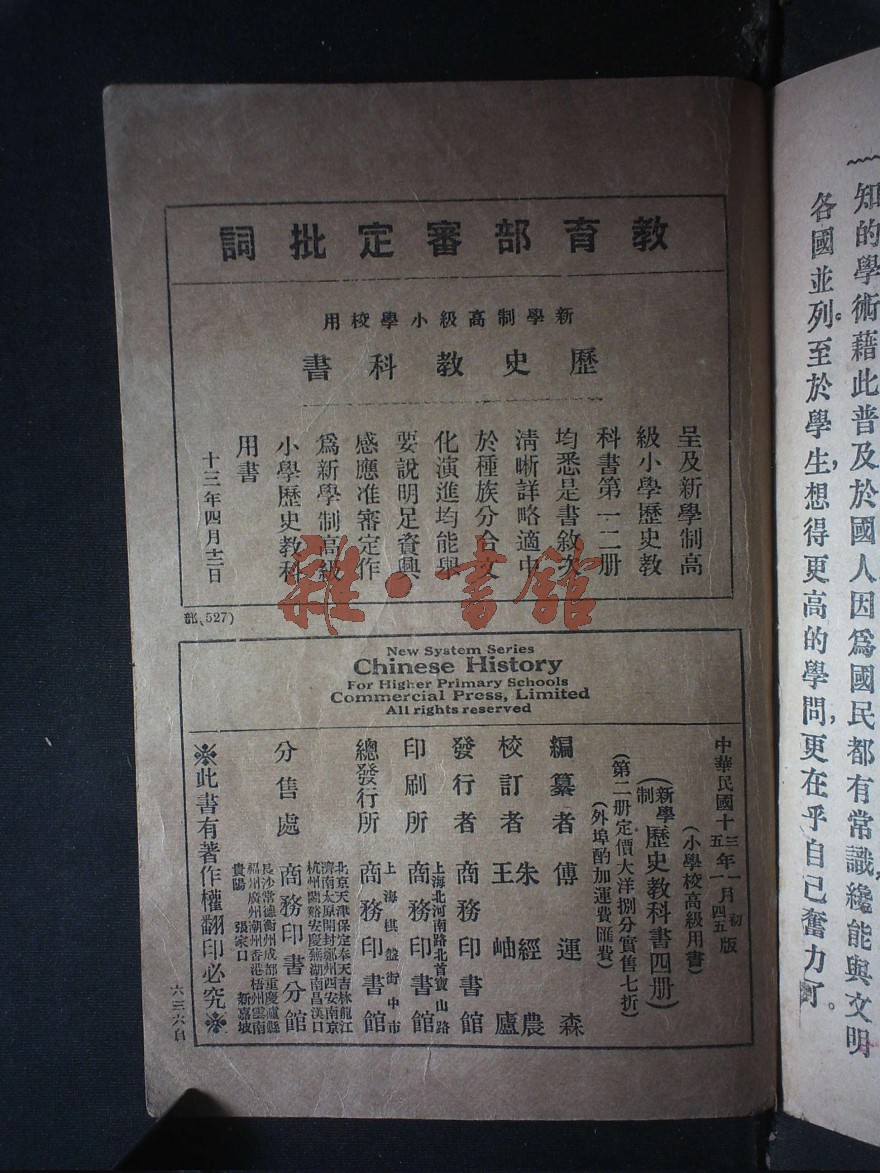 教育部審定批詞
新學制高級小學校用
歷史教科書
呈及新學制高
級小學歷史教
科書第一二册
均悉是書敘次
清晰詳略適中
於種族分合文
化演進均能舉
要說明足資興
感應准審定作
爲新學制高級
小學歷史教科
用書
十三年四月十二日
部(527)
New System Series
Chinese History
For Higher Primary Schools
Commercial Press, Limited
All rights reserved
中華民國十三年一月初版
五 一 四五
(小學校高級用書)
(新學制歷史教科書四册)
(第二册定價大洋捌分實售七折)
(外埠酌加運費匯費)
編纂者 傅運森
校訂者 朱經農
王岫廬
發行者 商務印書館
印刷所 上海北河南路北首寶山路
商務印書館
總發行所 上海棋盤街中市
商務印書館
分售處 商務印書分館
北京天津保定奉天吉林龍江
濟南太原開封鄭州西安南京
杭州蘭谿安慶蕪湖南昌漢口
長沙常德衡州成都重慶瀘縣
福州廣州潮州香港梧州雲南
貴陽 張家口 新嘉坡
※此書有著作權翻印必究※
六三六自
知的學術藉此普及於國人因爲國民都有常識纔能與文明
各國並列。至於學生,想得更高的學問,更在乎自己奮力了。
雜·書館